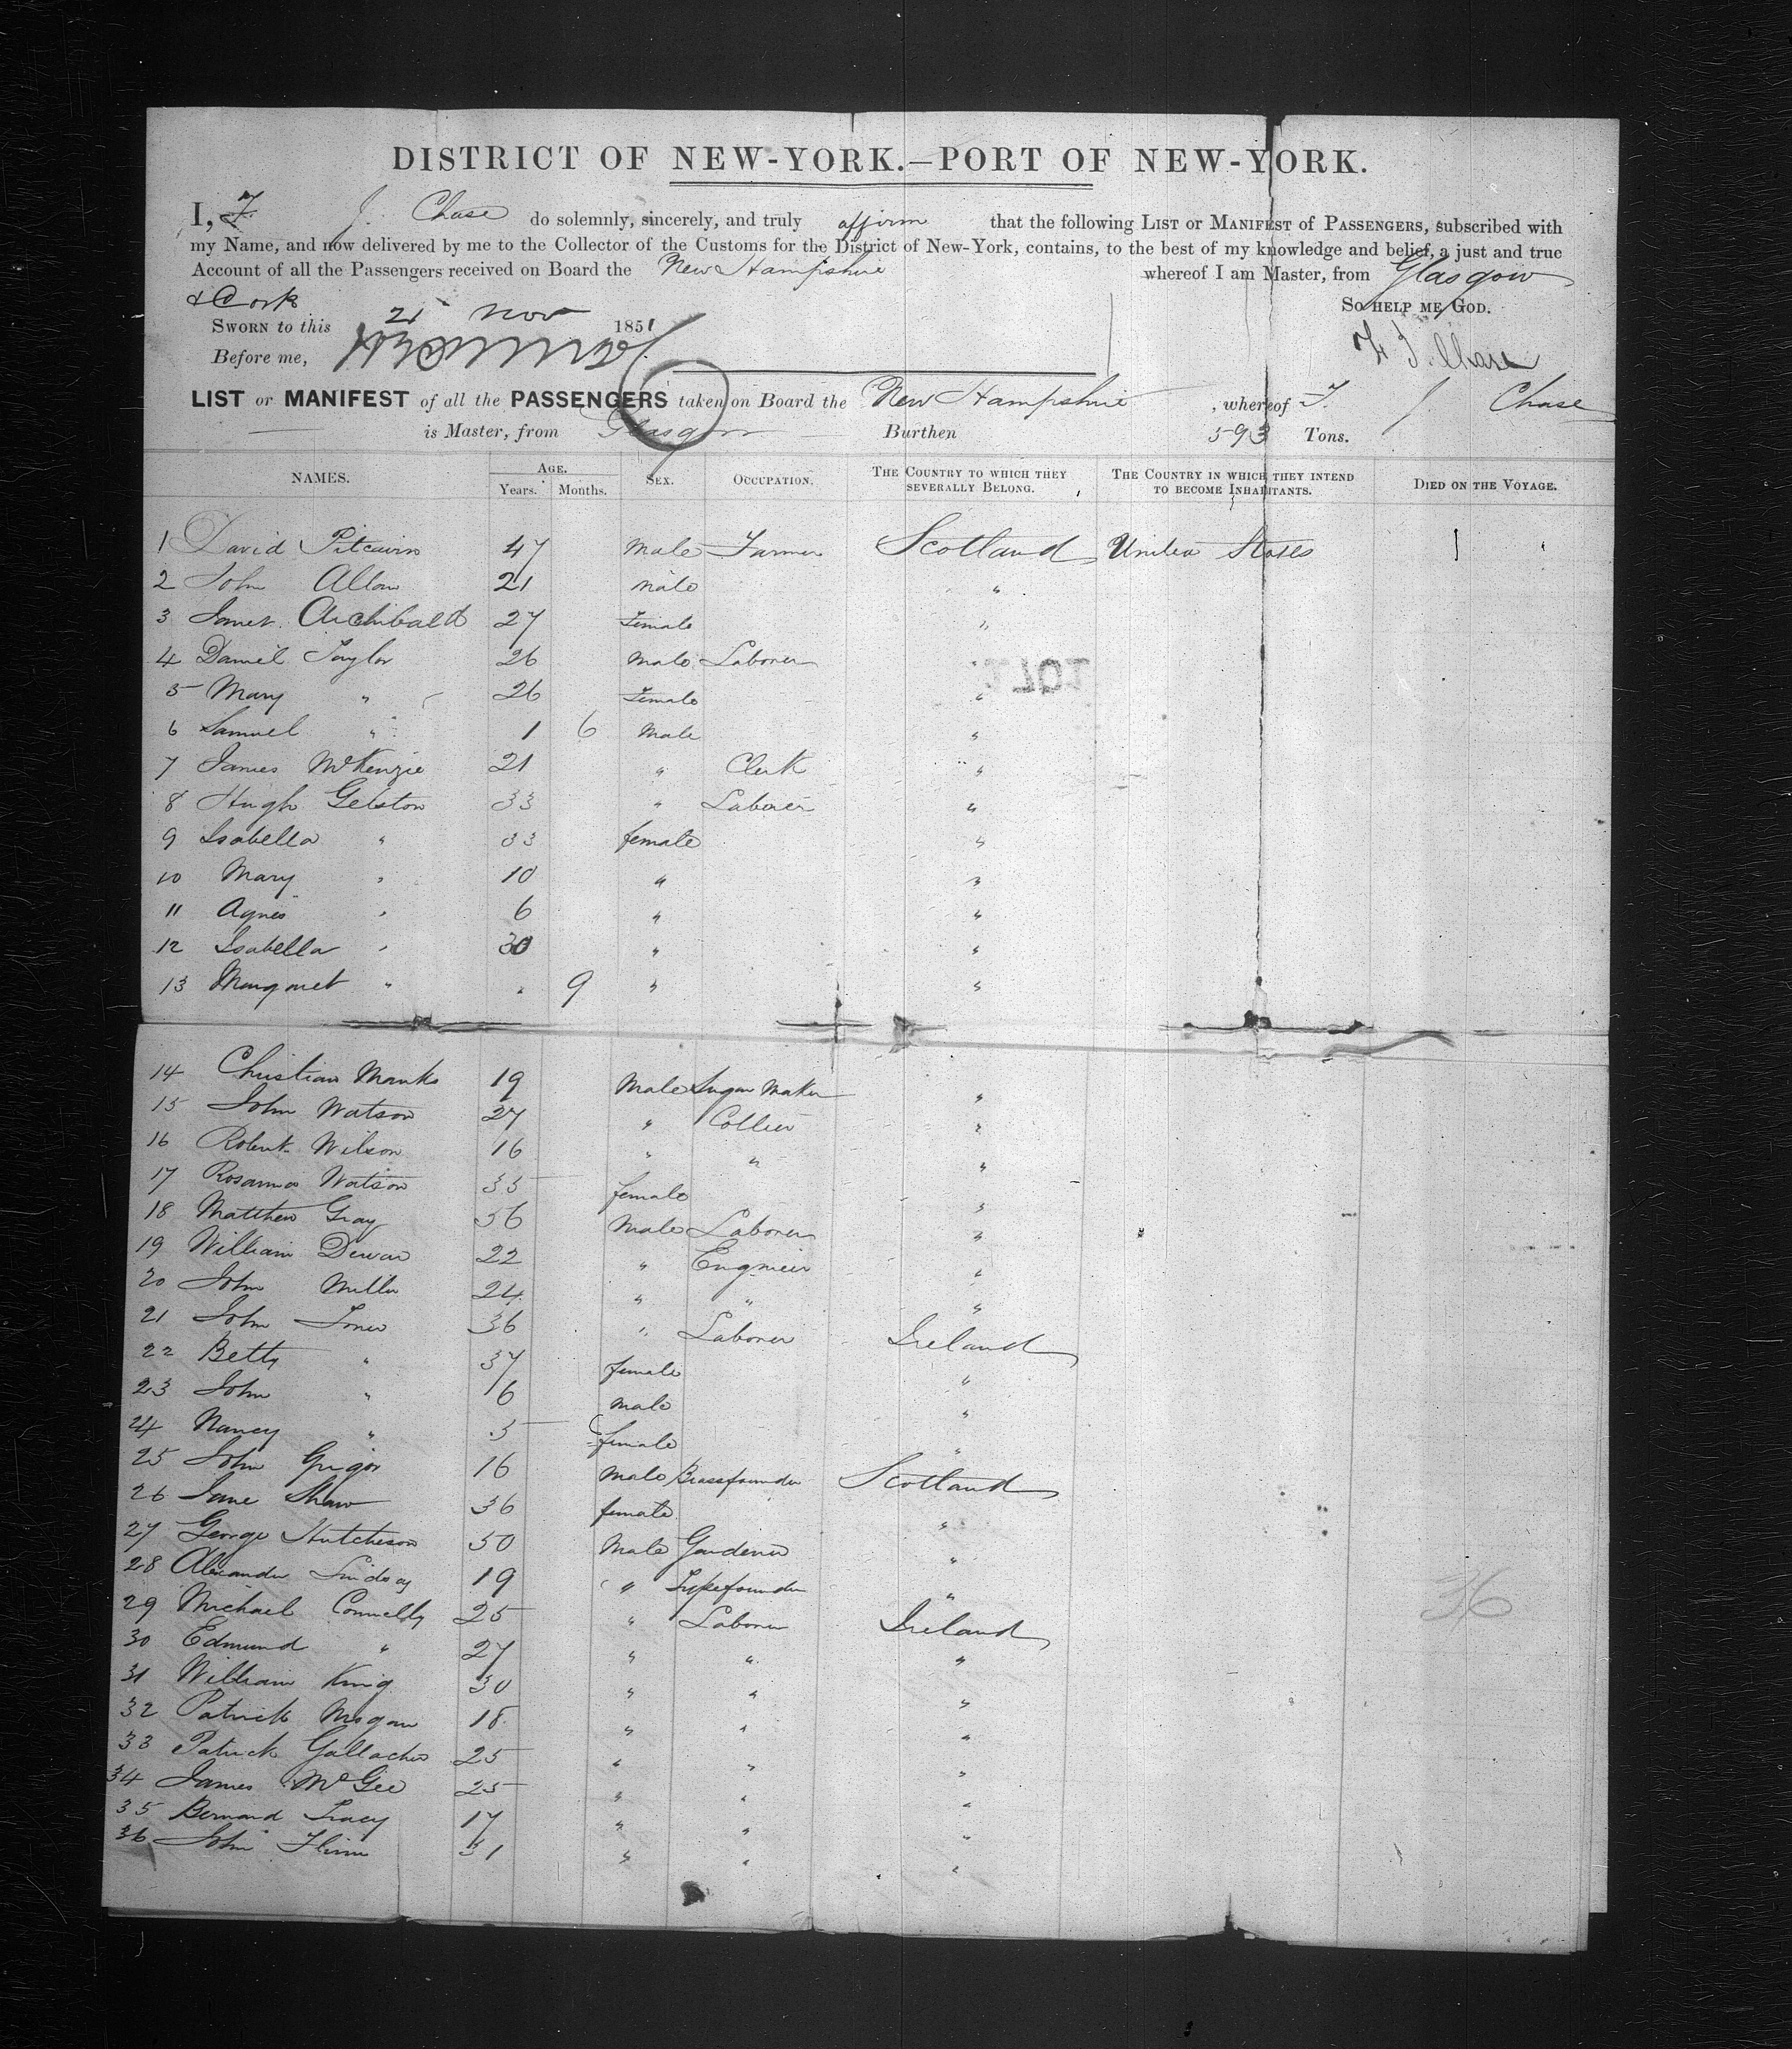 DISTRICT OF NEW-YORK.—PORT OF NEW-YORK.
I, F. J. Chase do solemnly, sincerely, and truly affirm that the following LIST OR MANIFEST OF PASSENGERS, subscribed with
my Name, and now delivered by me to the Collector of the Customs for the District of New-York, contains, to the best of my knowledge and belief, a just and true
Account of all the Passengers received on Board the New Hampshire whereof I am Master, from Glasgow
& Cork SO HELP ME GOD.
SWORN to this 21 Nov 1851
Before me, F. J. Chase
LIST or MANIFEST of all the PASSENGERS taken on Board the New Hampshire, whereof F. J. Chase
is Master, from Glasgow Burthen 593 Tons.
NAMES. AGE. Years. Months. SEX. OCCUPATION. THE COUNTRY TO WHICH THEY SEVERALLY BELONG. THE COUNTRY IN WHICH THEY INTEND TO BECOME INHABITANTS. DIED ON THE VOYAGE.
1 David Pitcairn 47 Male Farmer Scotland United States
2 John Allan 21 Male "
3 Janet Archibald 27 Female "
4 Daniel Taylor 26 Male Laborer
5 Mary " 26 Female "
6 Samuel " 1 6 Male "
7 James McKenzie 21 " Clerk "
8 Hugh Gelston 33 " Laborer "
9 Isabella " 33 female "
10 Mary " 10 " "
11 Agnes " 6 " "
12 Isabella " 3 " "
13 Margaret " " 9 " "
14 Christian Manks 19 Male Sugar Maker "
15 John Watson 27 " Collier "
16 Robert Wilson 16 " " "
17 Rosanna Watson 35 female "
18 Matthew Gray 56 Male Laborer "
19 William Dewar 22 " Engineer "
20 John Miller 24 " " "
21 John Toner 36 " Laborer Ireland
22 Betty " 37 female "
23 John " 16 male "
24 Nancy " 5 female "
25 John Grigor 16 Male Brassfounder Scotland
26 Jane Shaw 36 female "
27 George Hutcheson 50 Male Gardener "
28 Alexander Lindsay 19 " Typefounder "
29 Michael Connelly 25 " Laborer Ireland
30 Edmund " 27 " " "
31 William King 30 " " "
32 Patrick 18 " " "
33 Patrick Gallacher 25 " " "
34 James McGee 25 " " "
35 Bernard Tracy 17 " " "
36 John Flinn 31 " " "
36